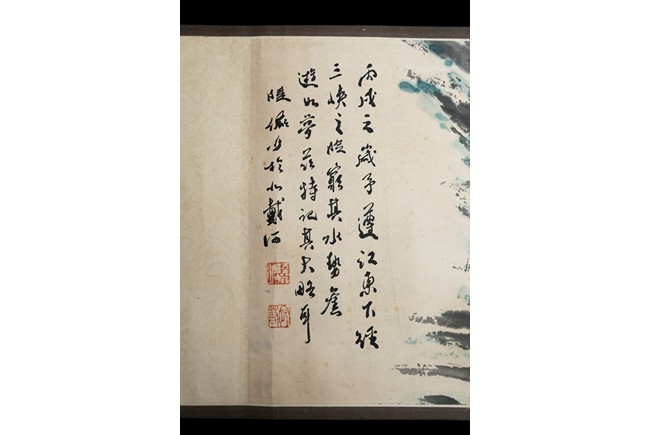 丙戌之歲予遵江東下經
三峽之險窮其水勢舊
遊如夢茲特記其大略耳
陸儼少於北戴河